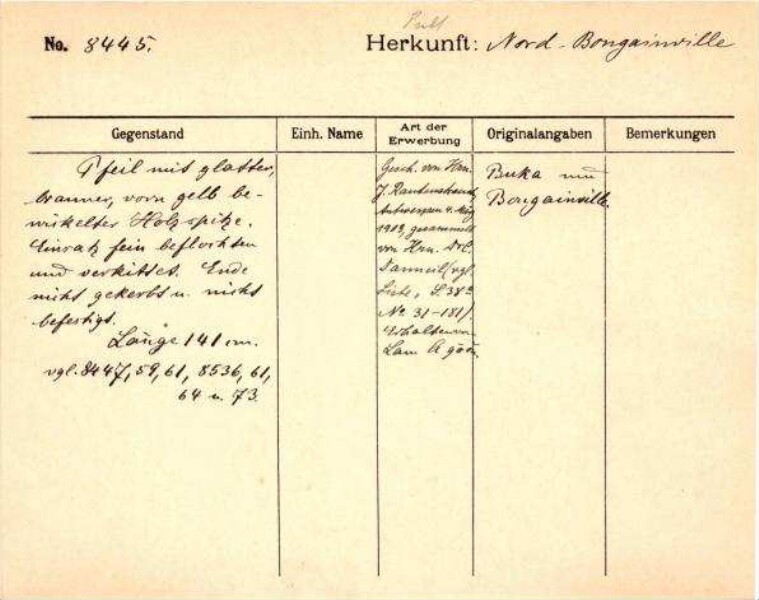 No. 8445.
Herkunft: Nord-Bougainville
Gegenstand
Einh. Name
Art der Erwerbung
Originalangaben
Bemerkungen
Pfeil mit glatter,
brauner, vorn gelb be-
wickelter Holzspitze.
Einsatz fein beflochten
und verkittet. Ende
nicht gekerbt u. nicht
befestigt.
Länge 141 cm.
vgl. 8447, 59, 61, 8536, 61,
64 u. 73.
Gesch. von Hrn.
J. Rautenstrauch,
Antwerpen 4. März
1903, gesammelt
von Hrn.
(vgl.
Liste, S. 38a
No 31-181).
Erhalten von
Buka und
Bougainville.